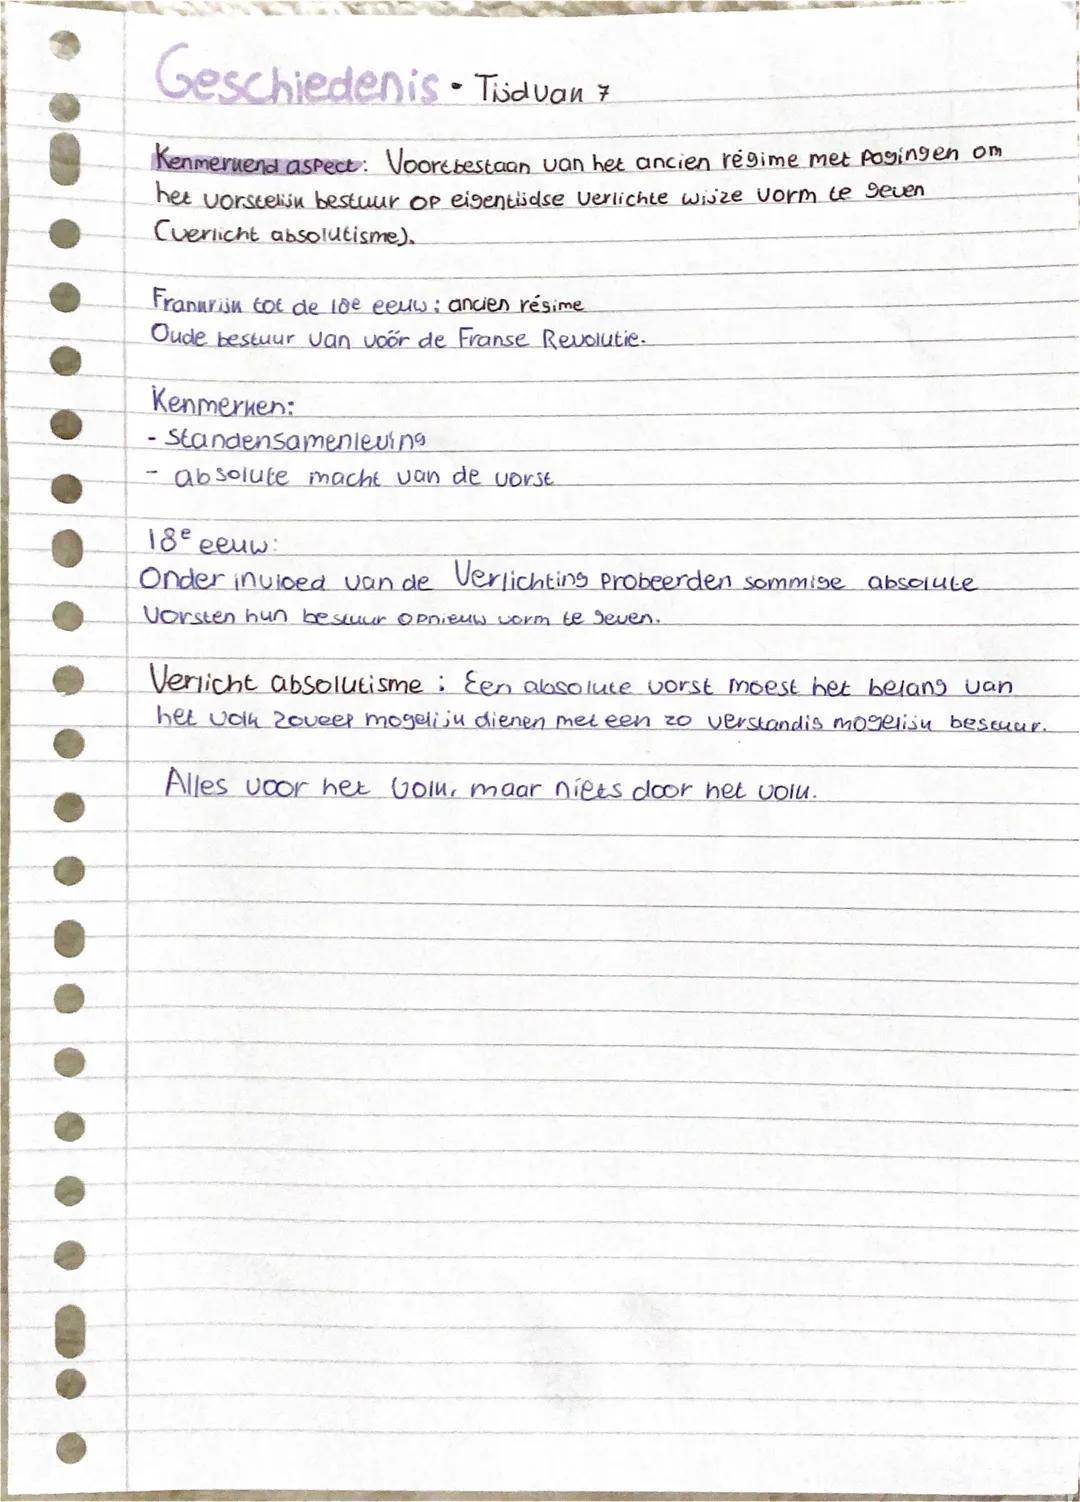 Geschiedenis - Tijdvan 7
Kenmerkend aspect: Voortbestaan van het ancien régime met pogingen om
het vorstelijk bestuur op eigentijdse verlichte wijze vorm te geven
(verlicht absolutisme).
Frankrijk tot de 18e eeuw: ancien régime
Oude bestuur van vóór de Franse Revolutie.
Kenmerken:
- standensamenleving
- absolute macht van de vorst
18e eeuw:
Onder invloed van de Verlichting probeerden sommige absolute
vorsten hun bestuur opnieuw vorm te geven.
Verlicht absolutisme: Een absolute vorst moest het belang van
het volk zoveel mogelijk dienen met een zo verstandig mogelijk bestuur.
Alles voor het volk, maar niets door het volk.